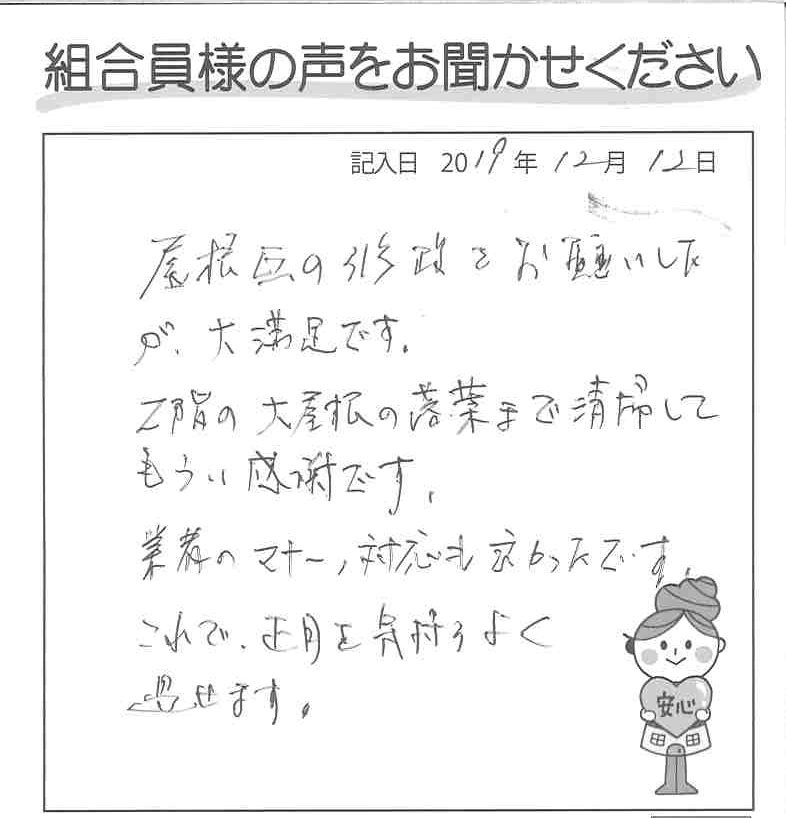 組合員様の声をお聞かせください
記入日 2019年12月12日
屋根瓦の修改をお願いした
が、大満足です。
2階の大屋根の落葉まで清掃して
もらい感謝です。
業者のマナー、対応も良かったです。
これで、正月を気持ちよく
過せます。
安心